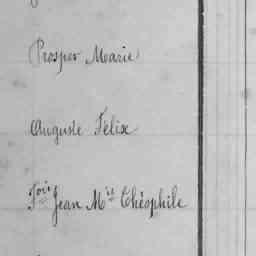 Prosper Marie
Auguste Félix
Fois Jean Mie Théophile